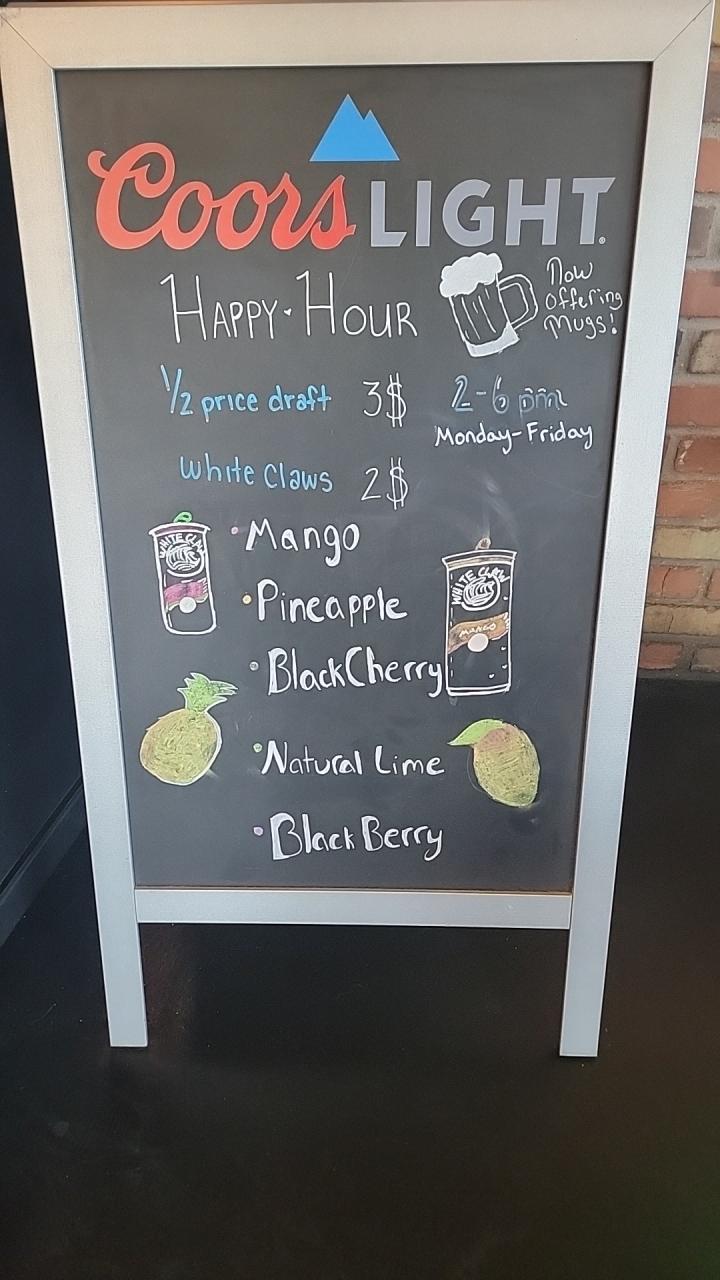 Coors LIGHT
HAPPY·HOUR
Now
offering
Mugs!
1/2 price draft 3$
2-6 pm
Monday-Friday
White Claws 2$
•Mango
•Pineapple
•BlackCherry
•Natural Lime
•Black Berry
WHITE CLAW
WHITE CLAW
MANGO